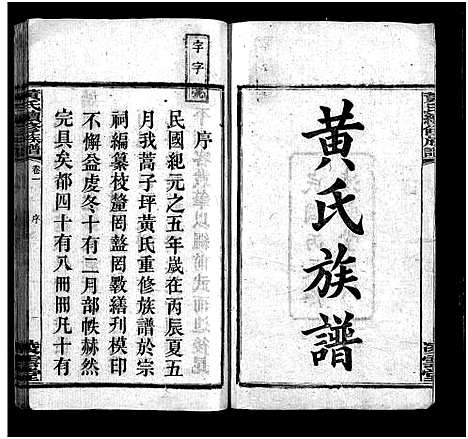 黃氏族譜
字字號
序
民國紀元之五年歲在丙辰夏五
月我蒿子坪黃氏重修族譜於宗
祠編纂枝聱罔盭罔斁繕刋模印
不懈益虔冬十有二月部帙赫然
完具矣都四十有八冊冊凡十有
黃氏續修族譜
卷一
序